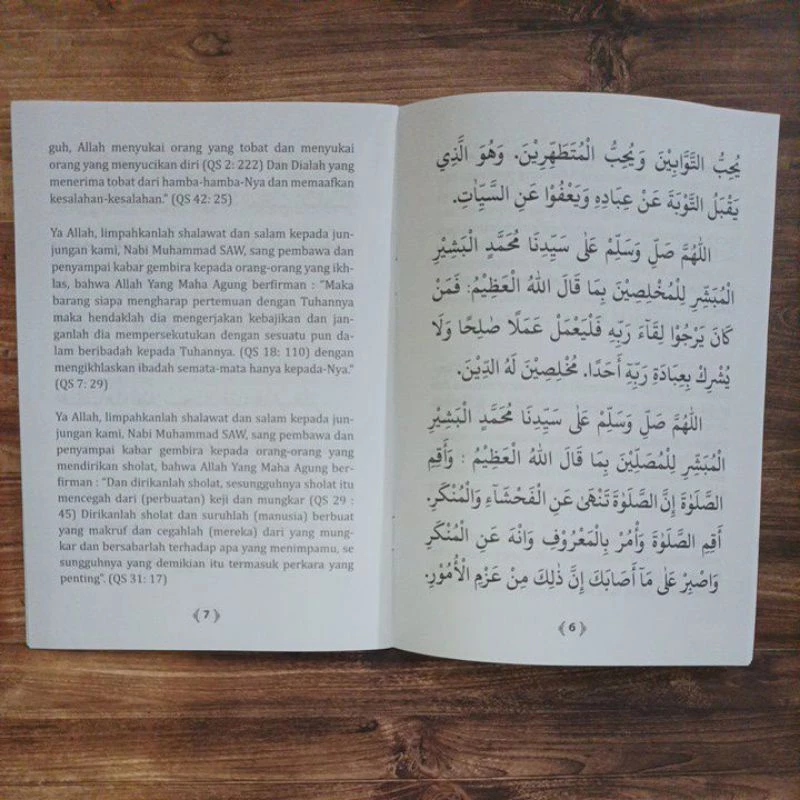 يُحِبُّ التَّوَّابِيْنَ وَيُحِبُّ الْمُتَطَهِّرِيْنَ. وَهُوَ الَّذِي
يَقْبَلُ التَّوْبَةَ عَنْ عِبَادِهِ وَيَعْفُوْا عَنِ السَّيِّاٰتِ.
اَللّٰهُمَّ صَلِّ وَسَلِّمْ عَلٰى سَيِّدِنَا مُحَمَّدٍ الْبَشِيْرِ
الْمُبَشِّرِ لِلْمُخْلِصِيْنَ بِمَا قَالَ اللهُ الْعَظِيْمُ: فَمَنْ
كَانَ يَرْجُوْا لِقَآءَ رَبِّهِ فَلْيَعْمَلْ عَمَلًا صٰلِحًا وَلَا
يُشْرِكْ بِعِبَادَةِ رَبِّهِ أَحَدًا. مُخْلِصِيْنَ لَهُ الدِّيْنَ.
اَللّٰهُمَّ صَلِّ وَسَلِّمْ عَلٰى سَيِّدِنَا مُحَمَّدٍ الْبَشِيْرِ
الْمُبَشِّرِ لِلْمُصَلِّيْنَ بِمَا قَالَ اللهُ الْعَظِيْمُ : وَأَقِمِ
الصَّلٰوةَ إِنَّ الصَّلٰوةَ تَنْهٰى عَنِ الْفَحْشَآءِ وَالْمُنْكَرِ.
أَقِمِ الصَّلٰوةَ وَأْمُرْ بِالْمَعْرُوْفِ وَانْهَ عَنِ الْمُنْكَرِ
وَاصْبِرْ عَلٰى مَآ أَصَابَكَ إِنَّ ذٰلِكَ مِنْ عَزْمِ الْأُمُوْرِ.
6
guh, Allah menyukai orang yang tobat dan menyukai
orang yang menyucikan diri (QS 2: 222) Dan Dialah yang
menerima tobat dari hamba-hamba-Nya dan memaafkan
kesalahan-kesalahan." (QS 42: 25)
Ya Allah, limpahkanlah shalawat dan salam kepada jun-
jungan kami, Nabi Muhammad SAW, sang pembawa dan
penyampai kabar gembira kepada orang-orang yang ikh-
las, bahwa Allah Yang Maha Agung berfirman : "Maka
barang siapa mengharap pertemuan dengan Tuhannya
maka hendaklah dia mengerjakan kebajikan dan jan-
ganlah dia mempersekutukan dengan sesuatu pun da-
lam beribadah kepada Tuhannya. (QS 18: 110) dengan
mengikhlaskan ibadah semata-mata hanya kepada-Nya."
(QS 7: 29)
Ya Allah, limpahkanlah shalawat dan salam kepada jun-
jungan kami, Nabi Muhammad SAW, sang pembawa dan
penyampai kabar gembira kepada orang-orang yang
mendirikan sholat, bahwa Allah Yang Maha Agung ber-
firman : "Dan dirikanlah sholat, sesungguhnya sholat itu
mencegah dari (perbuatan) keji dan mungkar (QS 29 :
45) Dirikanlah sholat dan suruhlah (manusia) berbuat
yang makruf dan cegahlah (mereka) dari yang mung-
kar dan bersabarlah terhadap apa yang menimpamu, se
sungguhnya yang demikian itu termasuk perkara yang
penting". (QS 31: 17)
7